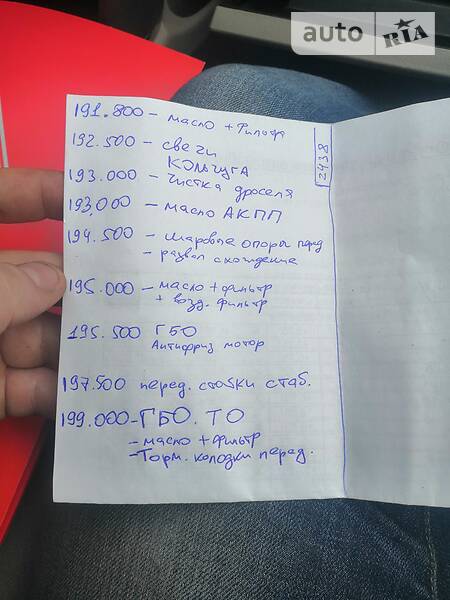 auto RIA
191.800 - масло + фильтр
192.500 - свечи
кольчуга
193.000 - чистка дроселя
193,000 - масло АКПП
194.500 - шаровые опоры перед
- развал схождение
195.000 - масло + фильтр
+ возд. фильтр
195.500 ГБО
Антифриз мотор
197.500 перед. стойки стаб.
199.000 - ГБО. ТО
- масло + фильтр
- Торм. колодки перед.
2438